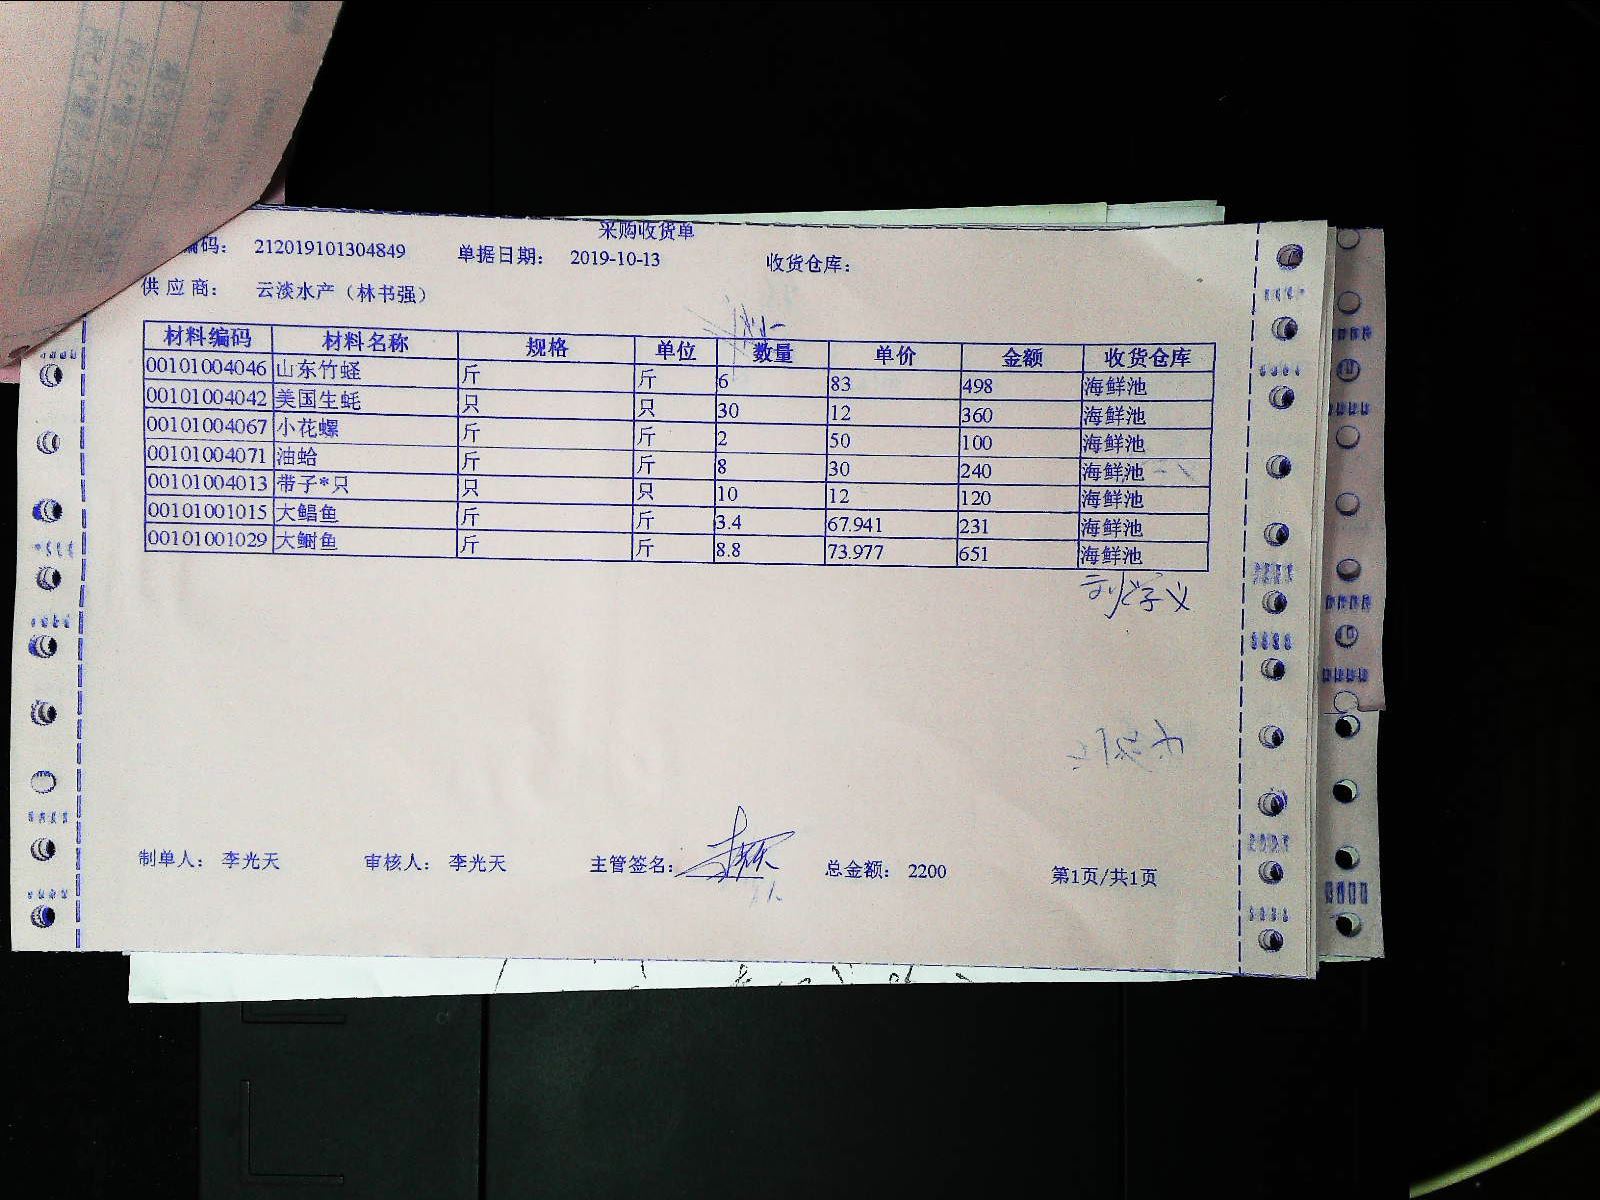 采购收货单
编码： 212019101304849 单据日期： 2019-10-13 收货仓库：
供应商： 云淡水产（林书强）
材料编码 材料名称 规格 单位 数量 单价 金额 收货仓库
00101004046 山东竹蛏 斤 斤 6 83 498 海鲜池
00101004042 美国生蚝 只 只 30 12 360 海鲜池
00101004067 小花螺 斤 斤 2 50 100 海鲜池
00101004071 油蛤 斤 斤 8 30 240 海鲜池
00101004013 带子*只 只 只 10 12 120 海鲜池
00101001015 大鲳鱼 斤 斤 3.4 67.941 231 海鲜池
00101001029 大鲥鱼 斤 斤 8.8 73.977 651 海鲜池
刘学义
制单人： 李光天 审核人： 李光天 主管签名： 总金额： 2200 第1页/共1页